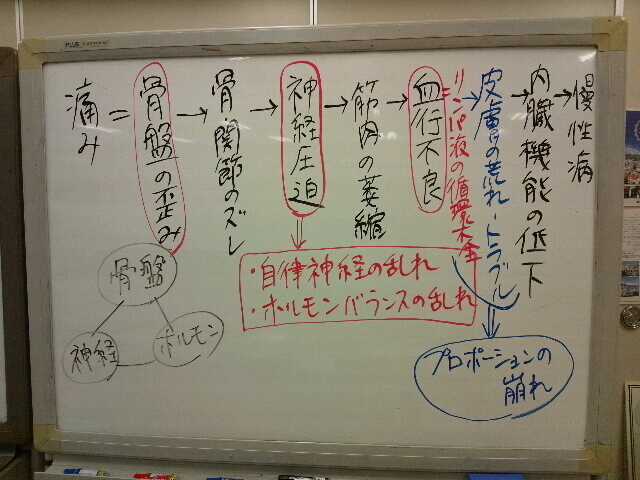 痛み = 骨盤の歪み → 骨・関節のズレ → 神経圧迫 → 筋肉の萎縮 → 血行不良 = リンパ液の循環不全 → 皮膚の荒れ・トラブル → 内臓機能の低下 → 慢性病
・自律神経の乱れ
・ホルモンバランスの乱れ
プロポーションの
崩れ
骨盤
神経
ホルモン